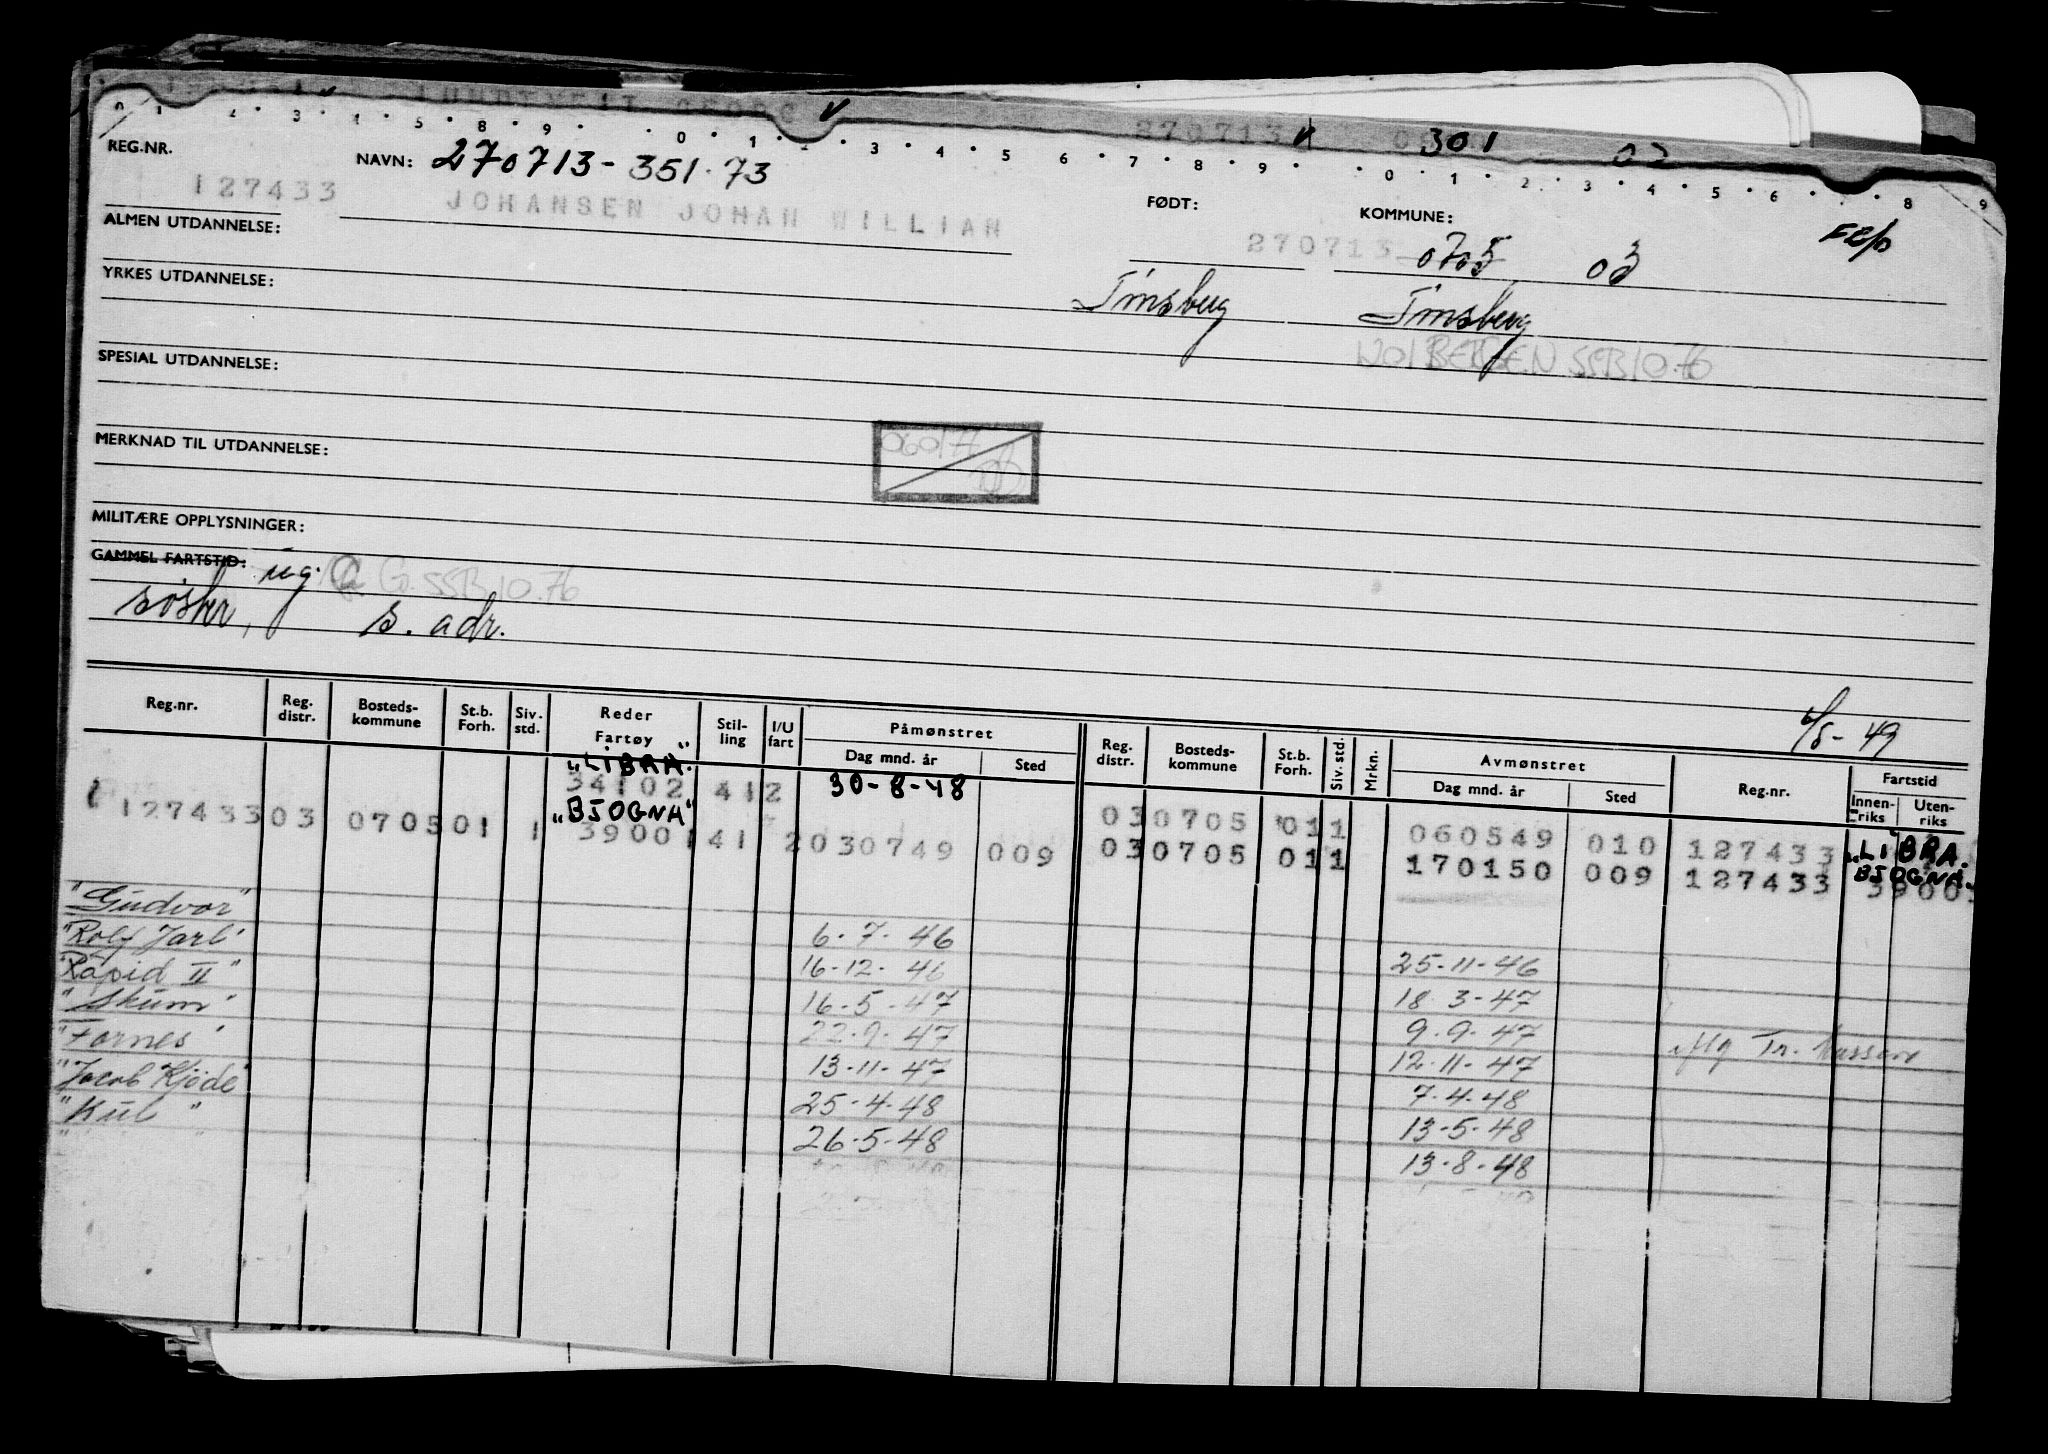 270713 301 02
REG.NR. NAVN: 270713-351.73
127433 JOHANSEN JOHAN WILLIAN FØDT: KOMMUNE:
ALMEN UTDANNELSE: 270713 0705 03
YRKES UTDANNELSE: Tønsberg Tønsberg
BERGEN SSB 10.76
SPESIAL UTDANNELSE:
MERKNAD TIL UTDANNELSE:
MILITÆRE OPPLYSNINGER:
GAMMEL FARTSTID: ug. G. SSB 10.76
s. adr.
6/5-49
Reg.nr. Reg. distr. Bosteds-kommune St.b. Forh. Siv. std. Reder Fartøy Stil-ling I/U fart Påmønstret Dag mnd. år Sted Reg. distr. Bosteds-kommune St.b. Forh. Siv. std. Mrkn. Avmønstret Dag mnd. år Sted Reg.nr. Fartstid Innen-riks Uten-riks
"LIBRA" 34102 41 2 30-8-48 03 0705 01 1 060549 010 127433 "LIBRA"
127433 03 0705 01 1 "BJOGNA" 39001 41 2 030749 009 03 0705 01 1 170150 009 127433 BJOGNA
"Gudvor" 6.7.46 25-11-46
"Rolf Jarl" 16-12-46 18.3-47
"Rapid II" 16-5-47 9.9.47
"Skum" 22.9.47 12.11.47
"Fornes" 13-11-47 7.4.48
"Jacob Kjøde" 25.4.48 13-5.48
"Kul" 26-5-48 13-8-48
iflg Tr.